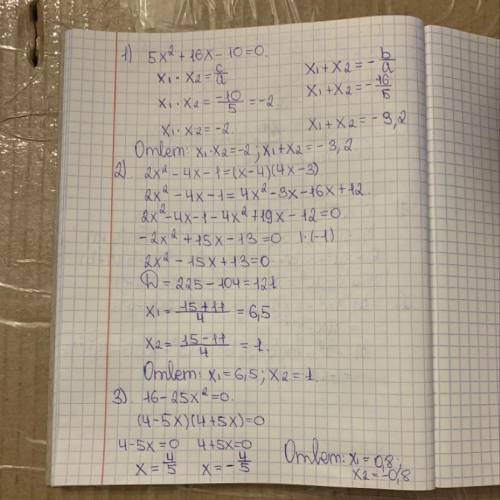 1) 5x² + 16x - 10 = 0.
x₁ · x₂ = c/a x₁ + x₂ = - b/a
x₁ · x₂ = -10/5 = -2. x₁ + x₂ = - 16/5
x₁ · x₂ = -2. x₁ + x₂ = -3,2
Ответ: x₁·x₂ = -2; x₁+x₂ = -3,2
2) 2x² - 4x - 1 = (x-4)(4x-3)
2x² - 4x - 1 = 4x² - 3x - 16x + 12
2x² - 4x - 1 - 4x² + 19x - 12 = 0
-2x² + 15x - 13 = 0 |·(-1)
2x² - 15x + 13 = 0
D = 225 - 104 = 121
x₁ = 15+11/4 = 6,5
x₂ = 15-11/4 = 1.
Ответ: x₁ = 6,5; x₂ = 1.
3) 16 - 25x² = 0.
(4-5x)(4+5x) = 0
4-5x=0 4+5x=0
x = 4/5 x = - 4/5
Ответ: x₁ = 0,8;
x₂ = -0,8